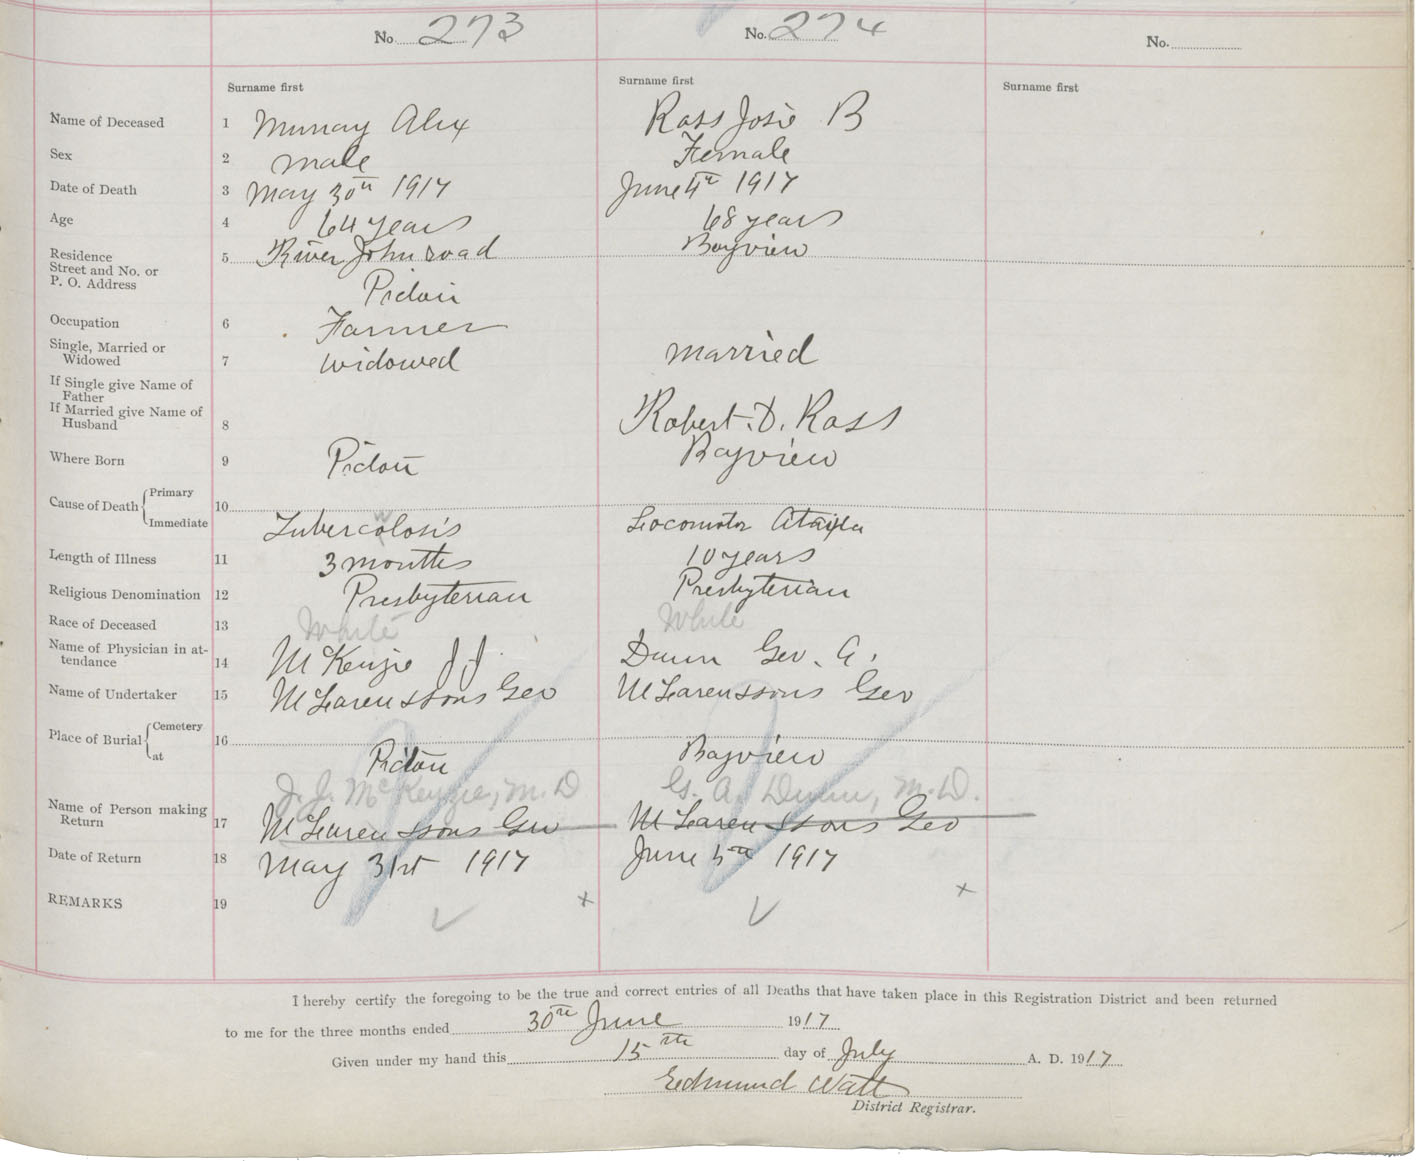 No. 273
No. 274
No.
Surname first
Surname first
Surname first
Name of Deceased 1 Murray Alex Ross Josie B
Sex 2 male Female
Date of Death 3 May 30th 1917 June 4th 1917
Age 4 64 years 68 years
Residence 5 River John road Bayview
Street and No. or
P. O. Address Pictou
Occupation 6 Farmer
Single, Married or
Widowed 7 widowed married
If Single give Name of
Father
If Married give Name of
Husband 8 Robert. D. Ross
Where Born 9 Pictou Bayview
Cause of Death { Primary 10
Immediate Tubercolosis Locomotor
Length of Illness 11 3 months 10 years
Religious Denomination 12 Presbyterian Presbyterian
Race of Deceased 13 White White
Name of Physician in at-
tendance 14 McKenzie J J Dunn Geo. A.
Name of Undertaker 15 McLaren & sons Geo McLaren & sons Geo
Place of Burial { Cemetery 16
at Pictou Bayview
J. J. McKenzie, M. D G. A. Dunn, M. D.
Name of Person making
Return 17 McLaren & sons Geo McLaren & sons Geo
Date of Return 18 May 31st 1917 June 5th 1917
REMARKS 19
I hereby certify the foregoing to be the true and correct entries of all Deaths that have taken place in this Registration District and been returned
to me for the three months ended 30th June 1917
Given under my hand this 15th day of July A. D. 1917
Edmund Watt
District Registrar.